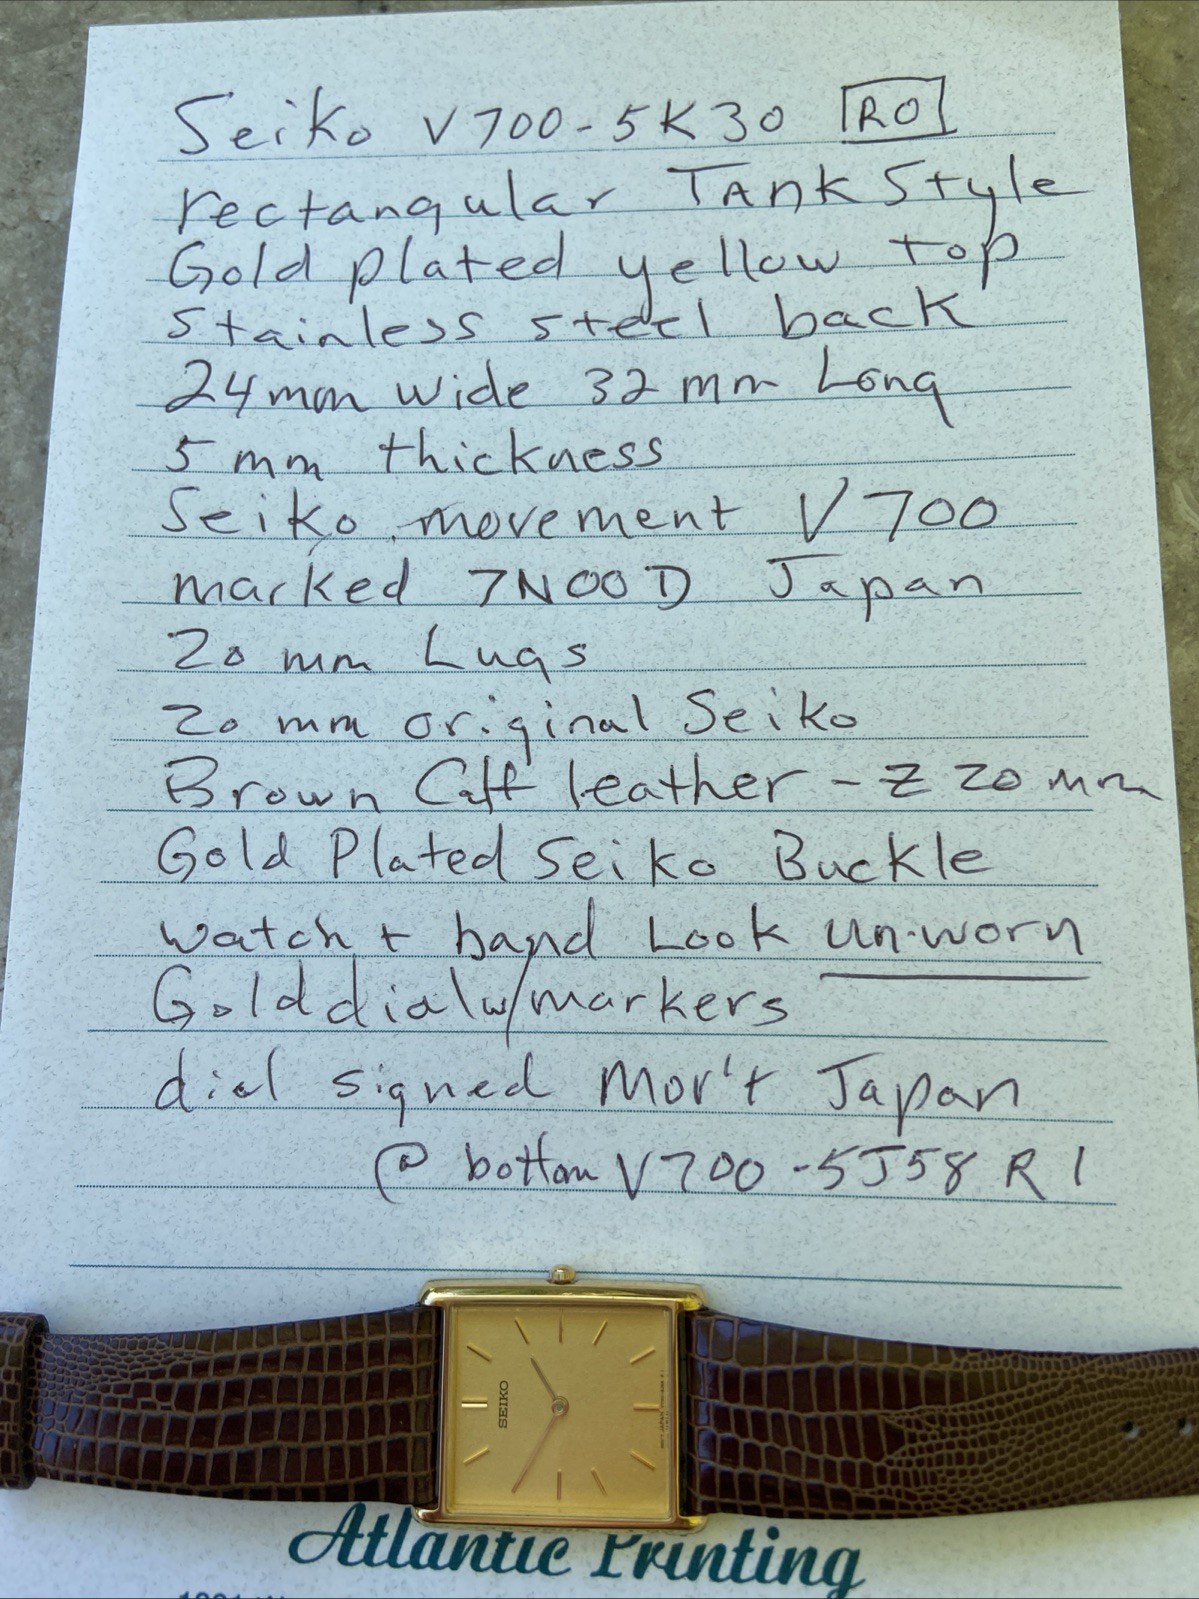 Seiko V700-5K30 RO
rectangular TANK Style
Gold plated yellow top
Stainless steel back
24mm wide 32 mm Long
5 mm thickness
Seiko movement V700
marked 7N00D Japan
20 mm Lugs
20 mm original Seiko
Brown Calf leather - Z 20 mm
Gold Plated Seiko Buckle
watch + band Look un-worn
Gold dial w/markers
dial signed Mov't Japan
@ bottom V700-5J58 R1
SEIKO
Atlantic Printing